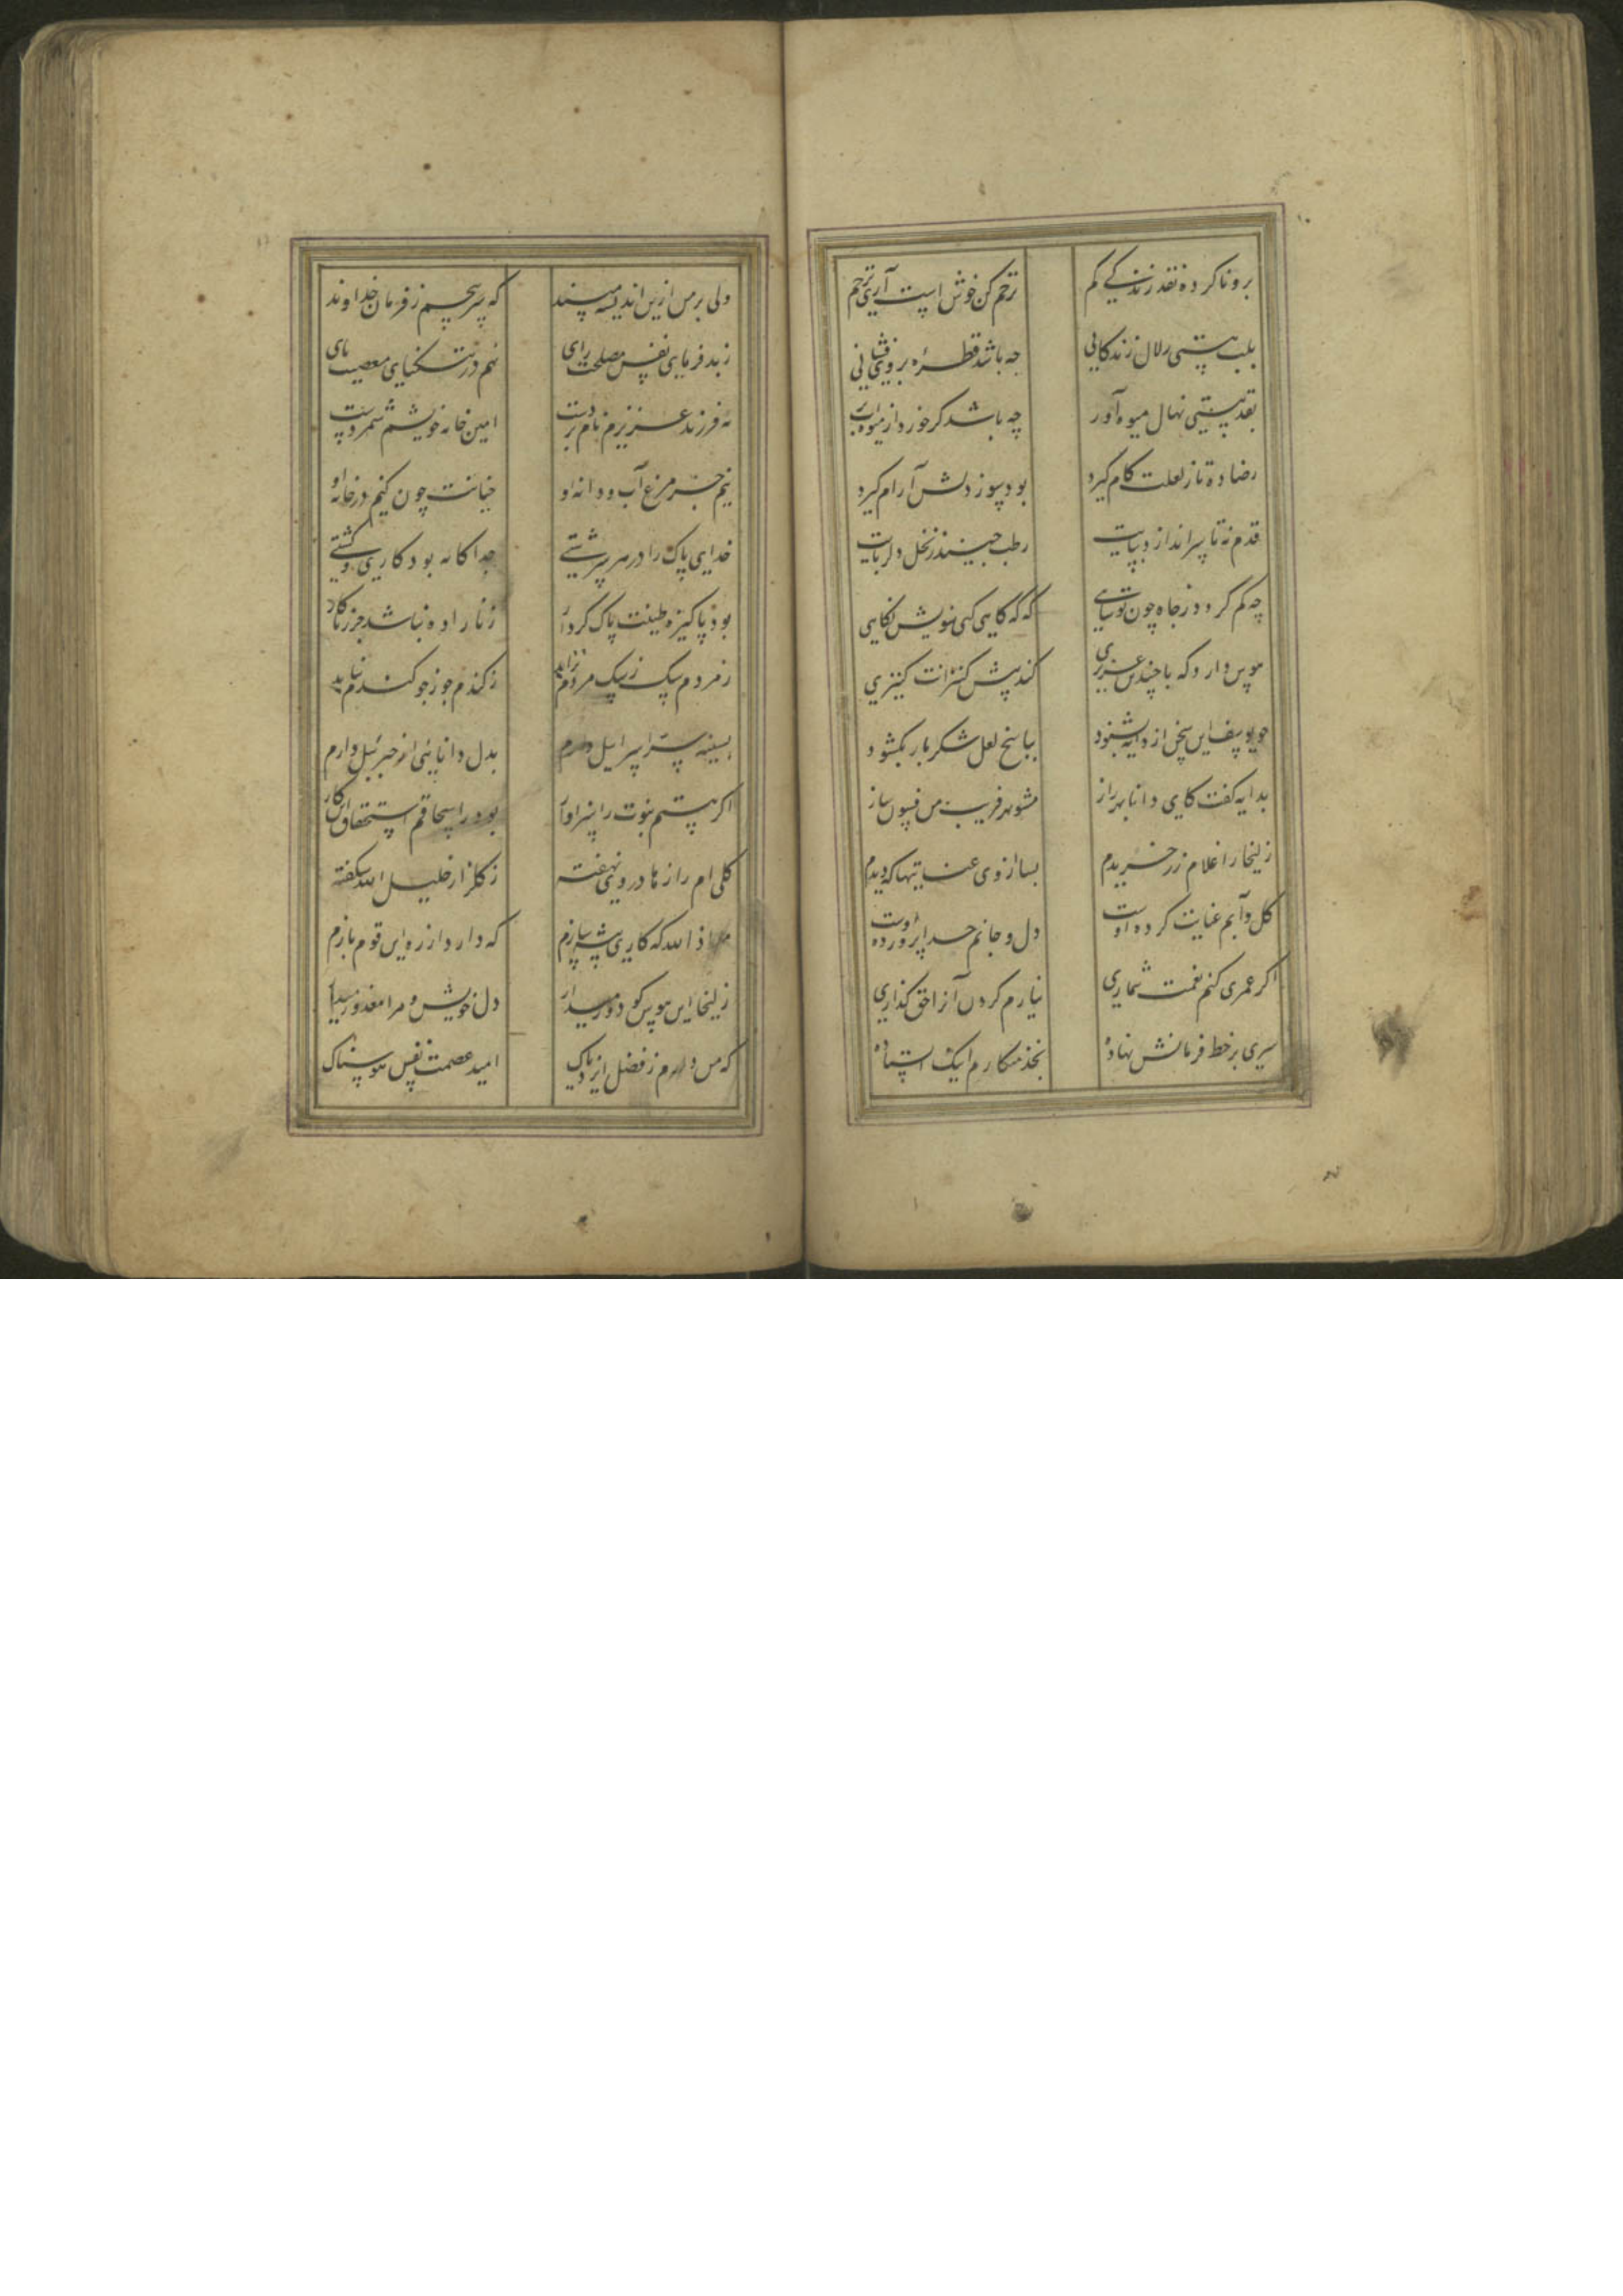 برو ناکرده نقد زندگی کم ترحم کن خوش است آری ترحم
بلب هستی زلال زندگانی چه باشد قطرهٔ بر وی فشانی
بقد هستی نهال میوه‌آور چه باشد گر خورد از میوه‌ات بر
رضا ده تا ز لعلت کام گیرد بود سوز دلش آرام گیرد
قدم نه تا سر اندازد بپایت رطب چیند ز نخل دلربایت
چه کم گردد ز جاه چون تو شاهی که گه گاهی کنی سویش نگاهی
هوس دارد که با چندین عزیزی کند پیش کنیزانت کنیزی
چو یوسف این سخن از دایه بشنود بپاسخ لعل شکربار بگشود
بدایه گفت کای دانا بهر راز مشو بهر فریب من فسون ساز
زلیخا را غلام زر خریدم بسا از وی عنایتها که دیدم
گل و آبم عنایت کرده اوست دل و جانم پرورده اوست
اگر عمری کنم نعمت شماری نیارم کردن آنرا حق گذاری
سری بر خط فرمانش نهاده بخدمتکاریم اینک استاده
ولی بر من ازین اندیشه مپسند که سر پیچم ز فرمان خداوند
ز بدفرمایی نفس مصلحت رای نهم در تنگنای معصیت پای
به فرزندی عزیزم نام بردست امین خانه خویشم شمردست
نیم جز مرغ آب و دانه او خیانت چون کنم در خانه او
خدای پاک را در هر سرشتی جداگانه بود کاری و کشتی
بود پاکیزه طینت پاک کردار زنازاده نباشد جز زناکار
ز مردم سگ ز سگ مردم نزاید ز گندم جو ز جو گندم نیاید
بسینه سر اسراییل دارم بدل دانایی از جبریل دارم
اگر هستم نبوت را سزاوار بود ز اسحاقم استحقاق این کار
گلی ام رازها در وی نهفته ز گلزار خلیل الله شکفته
معاذ الله که کاری پیشه سازم که دارد از ره این قوم بازم
زلیخا این هوس گو دور میدار دل خویش و مرا معذور میدار
که من دارم ز فضل ایزد پاک امید عصمت نفس هوسناک